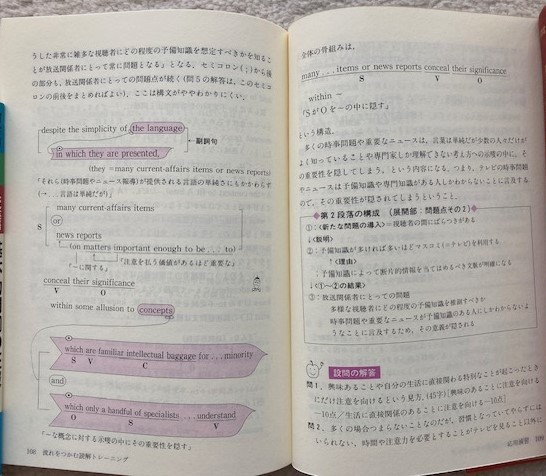 うした非常に雑多な視聴者にどの程度の予備知識を想定すべきかを知るこ
とが放送関係者にとって常に問題となる」となる。セミコロン(;)から後
の部分も、放送関係者にとっての問題点が続く(問5の解答は、このセミコ
ロンの前後をまとめればよい)。ここは構文がややわかりにくい。
despite the simplicity of the language
in which they are presented,
副詞句
(they = many current-affairs items or news reports)
「それら(時事問題やニュース報道)が提供される言語の単純さにもかかわらず
(→…言語は単純だが)」
many current-affairs items
S
or
news reports
(on matters important enough to be . . . to)
「〜に関する」
「注意を払う価値があるほど重要な」
conceal their significance
V O
within some allusion to concepts
which are familiar intellectual baggage for . . . minority
S V C
and
which only a handful of specialists . . . understand
O S V
「〜な概念に対する示唆の中にその重要性を隠す」
108 流れをつかむ読解トレーニング
全体の骨組みは、
many . . . items or news reports conceal their significance
S V O
within ~
「SがOを〜の中に隠す」
という構造。
多くの時事問題や重要なニュースは、言葉は単純だが少数の人々だけが
よく知っていることや専門家しか理解できない考え方への示唆の中に、そ
の重要性を隠してしまう、という内容になる。つまり、テレビの時事問題
やニュースは予備知識や専門知識がある人しかわからないことに言及する
ので、その重要性が隠されてしまうということ。
◆第2段落の構成(展開部:問題点その2)◆
①:〈新たな問題の導入〉=視聴者の間にばらつきがある
〈説明〉
②:予備知識が多ければ多いほどマスコミ(=テレビ)を利用する
↑〈理由〉
:予備知識によって断片的情報を当てはめるべき文脈が明確になる
〈①〜②の結果〉
③:放送関係者にとっての問題
多様な視聴者にどれほどの予備知識を推測すべきか
時事問題や重要なニュースが予備知識のある人にしかわからないよ
うなことに言及するため、その意義が隠される
設問の解答
問1. 興味あることや自分の生活に直接関わる特別なことが起こったとき
にだけ注意を向けるという見方。(45字)〔興味のあることに注意を向ける
―10点/生活に直接関係のあることに注意を向ける―10点〕
問2. 多くの場合つまらないことなのだが、習慣となっていてやらずには
いられない、時間や注意力を必要とすることがテレビを見ること以外に
応用演習 109